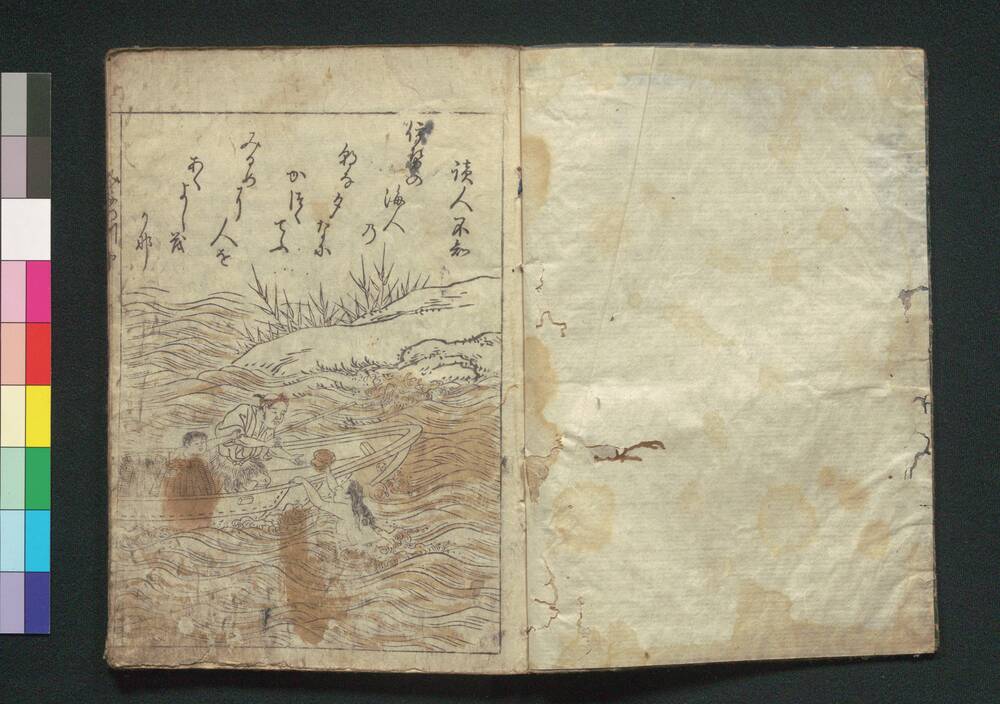 讀人不知
伊勢の
海人
乃
朝な夕
な尓
かつく
てふ
みるめ
尓
人を
あくよし茂
か那